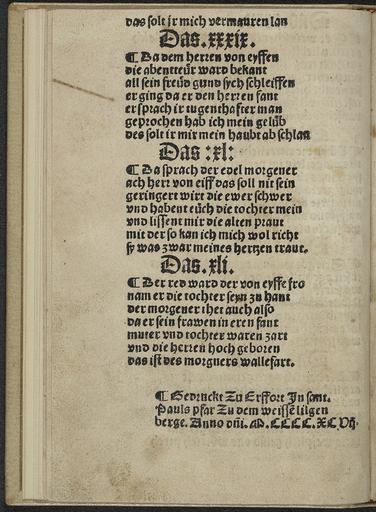 das solt jr mich vermauren lan
Das .xxxix.
¶ Da dem herren von eyssen
die abentteür ward bekant
all sein freüd gund sych schleissen
er ging da er den herren fant
er sprach ir tugenthafter man
geprochen hab ich mein gelüb
des solt ir mir mein haubt ab schlan
Das :xl:
¶ Da sprach der edel morgener
ach herr von eiss das soll nit sein
geringert wirt die ewer schwer
vnd habent eüch die tochter mein
vnd lissent mir die alten praut
mit der so kan ich mich wol richt
sy was zwar meines hertzen traut.
Das. xli.
¶ Der red ward der von eysse fro
nam er die tochter seyn zu hant
der morgener thet auch also
da er sein frawen in eren fant
muter vnd tochter waren zart
vnd die herren hoch geboren
das ist des morgners wallefart.
¶ Gedruckt Zu Erffort Jn sant.
Pauls pfar Zu dem weissē lilgen
berge. Anno dñi. M.CCCC.XC